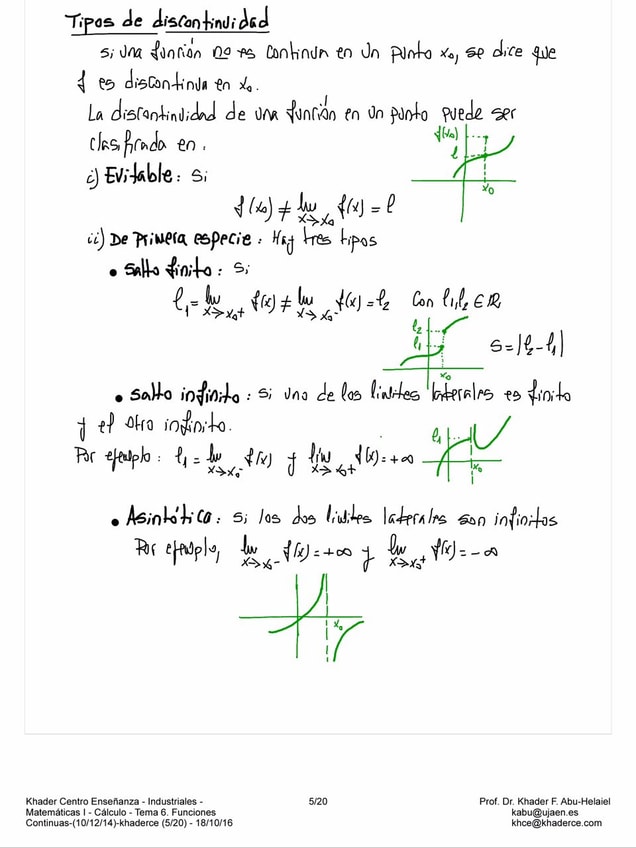 Tipos de discontinuidad
Si una función no es continua en un punto x₀, se dice que
f es discontinua en x₀.
La discontinuidad de una función en un punto puede ser
clasificada en:
f(x₀)
l
x₀
i) Evitable: Si
f(x₀) ≠ lim x→x₀ f(x) = l
ii) De primera especie: Hay tres tipos
• Salto finito: Si
l₁ = lim x→x₀⁺ f(x) ≠ lim x→x₀⁻ f(x) = l₂ Con l₁, l₂ ∈ ℝ
l₂
l₁
x₀
S = |l₂ - l₁|
• Salto infinito: Si uno de los limites laterales es finito
y el otro infinito.
Por ejemplo: l₁ = lim x→x₀⁻ f(x) y lim x→x₀⁺ f(x) = +∞
l₁
x₀
• Asintótica: Si los dos limites laterales son infinitos
Por ejemplo, lim x→x₀⁻ f(x) = +∞ y lim x→x₀⁺ f(x) = -∞
x₀
Khader Centro Enseñanza - Industriales -
Matemáticas I - Cálculo - Tema 6. Funciones
Continuas-(10/12/14)-khaderce (5/20) - 18/10/16
5/20
Prof. Dr. Khader F. Abu-Helaiel
kabu@ujaen.es
khce@khaderce.com